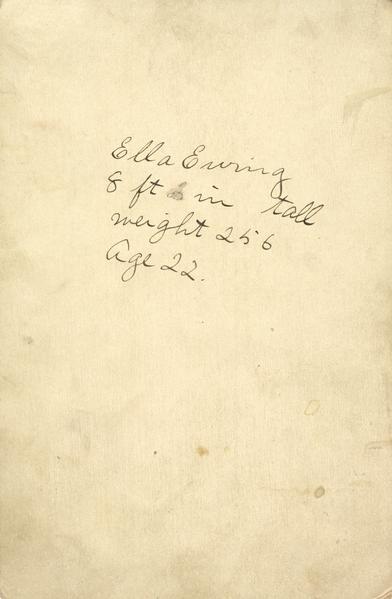 Ella Ewing
8 ft in tall
weight 256
Age 22.